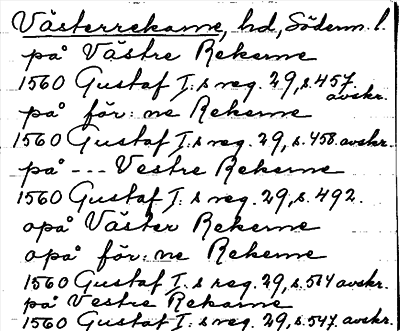 Västerrekarne, hd, Söderm. l.
på Västre Rekerne
1560 Gustaf I:s reg. 29, s. 457. avskr.
på för:ne Rekerne
1560 Gustaf I:s reg. 29, s. 458. avskr.
på --- Vestre Rekerne
1560 Gustaf I:s reg. 29, s. 492.
opå Väster Rekerne
opå för:ne Rekerne
1560 Gustaf I:s reg. 29, s. 514 avskr.
på Vestre Rekarne
1560 Gustaf I:s reg. 29, s. 547. avskr.